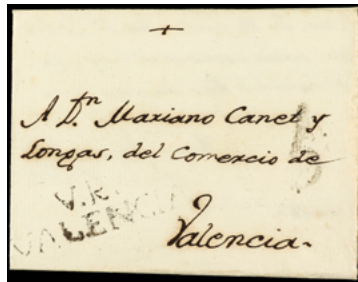 +
A D.n Mariano Canet y
Longas, del Comercio de
Valencia.
V.R.
VALENCIA